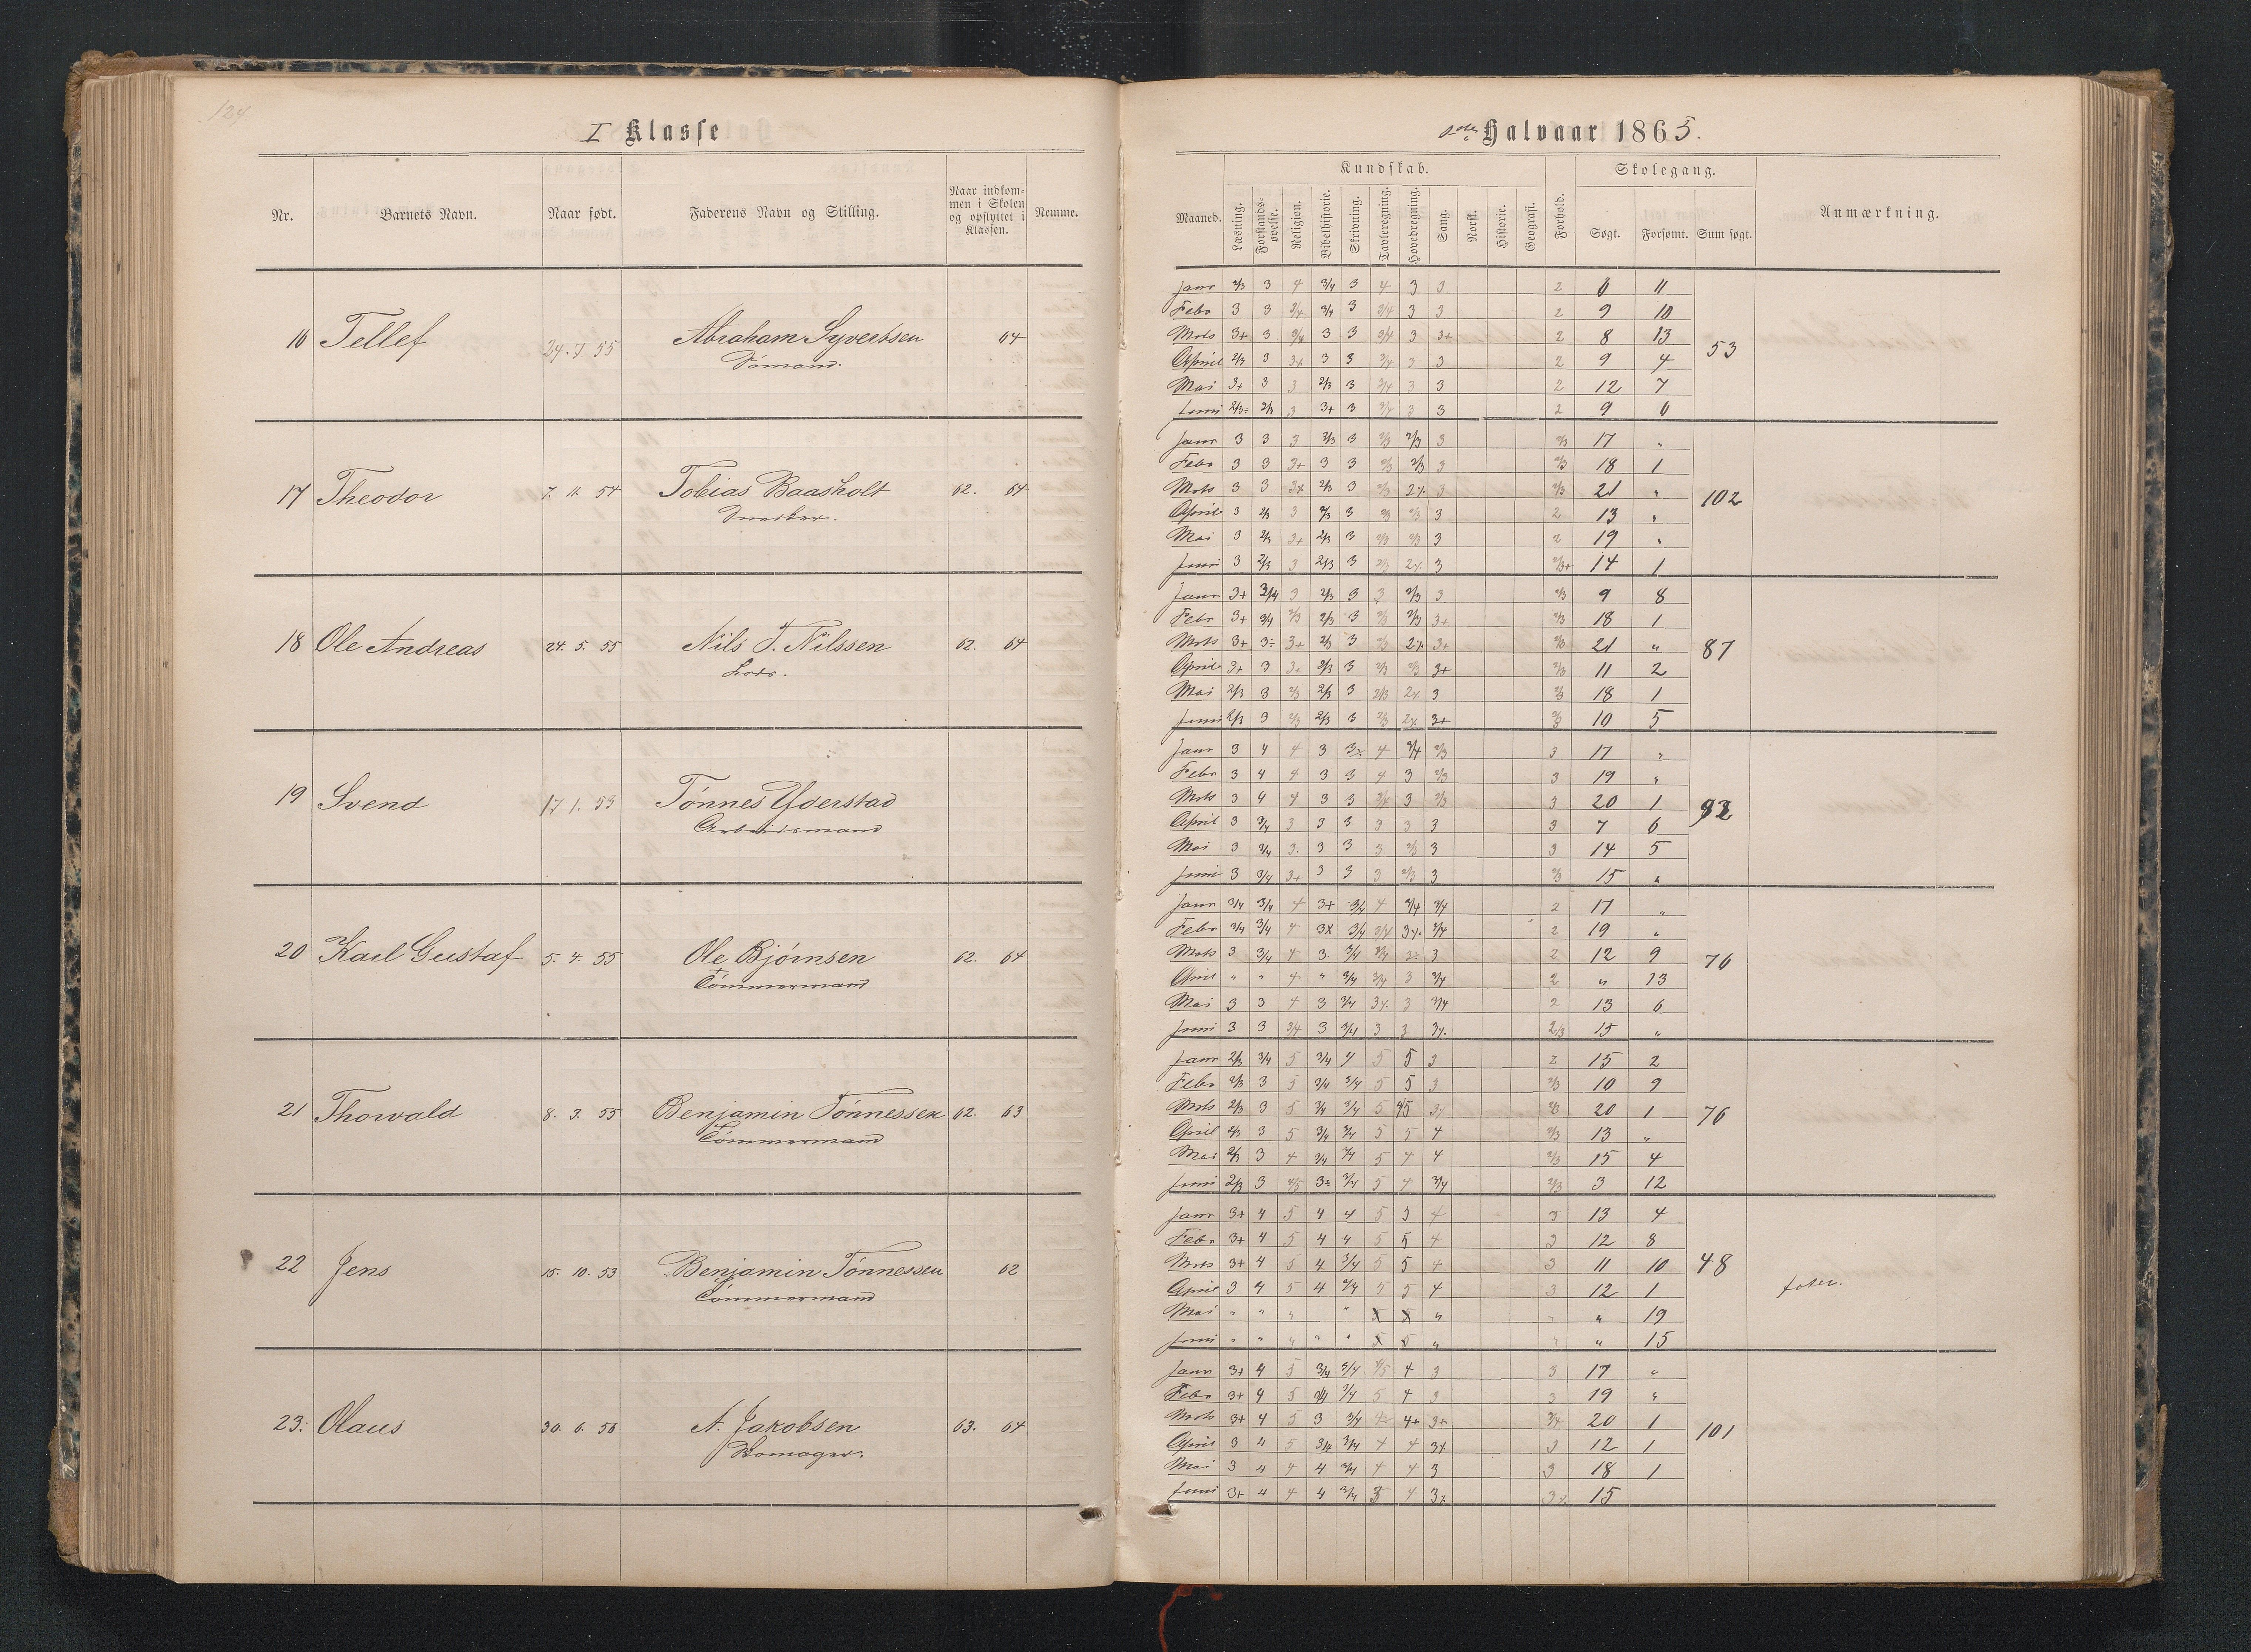 124
I Klasse
Nr. Barnets Navn. Naar født. Faderens Navn og Stilling. Naar indkommen i Skolen og opflyttet i Klassen. Nemme.
16 Tellef 24. 7 55 Abraham Syvertsen 64
Sømand.
17 Theodor 7. 11. 54 Tobias Baasholt 62. 64
Snedker.
18 Ole Andreas 24. 5. 55 Nils T. Nilssen 62. 64
Lods.
19 Svend 17 1. 53 Tønnes Yderstad
Arbeidsmand
20 Karl Gustaf 5. 4. 55 Ole Bjørnsen 62. 64
Tömmermand
21 Thorvald 8. 3. 55 Benjamin Tønnessen 62. 63
Tömmermand
22 Jens 15. 10. 53 Benjamin Tønnessen 62
Tömmermand
23. Olaus 30. 6. 56 A. Jakobsen 63. 64
Skomager.
Halvaar 1865.
Maaned. Kundskab. Forhold. Skolegang. Anmærkning.
Læsning. Forstandsøvelse. Religion. Bibelhistorie. Skrivning. Tavleregning. Hovedregning. Sang. Norsk. Historie. Geografi. Søgt. Forsømt. Sum søgt.
Janr 2/3 3 4 3/4 3 4 3 3 2 6 11
Febr 3 3 3/4 3/4 3 3/4 3 3 2 9 10
Mrts 3+ 3 3/4 3 3 3/4 3 3+ 2 8 13
53
April 2/3 3 3+ 3 3 3/4 3 3 2 9 4
Mai 3+ 3 3 2/3 3 3/4 3 3 2 12 7
Juni 2/3 2/3 3 3+ 3 3/4 3 3 2 9 6
Janr 3 3 3 2/3 3 2/3 2/3 3 2/3 17 "
Febr 3 3 3+ 3 3 2/3 2/3 3 2/3 18 1
Mrts 3 3 3+ 2/3 3 2/3 2 3 2/3 21 "
102
April 3 2/3 3 2/3 3 2/3 2/3 3 2 13 "
Mai 3 2/3 3+ 2/3 3 2/3 2/3 3 2 19 "
Juni 3 2/3 3 2/3 3 2/3 2 3 2/3+ 14 1
Janr 3+ 3/4 3 2/3 3 3 2/3 3 2/3 9 8
Febr 3+ 3/4 2/3 2/3 3 2/3 2/3 3+ 2/3 18 1
Mrts 3+ 3 3+ 2/3 3 2/3 2 3+ 2/3 21 "
87
April 3+ 3 3+ 2/3 3 2/3 2/3 3+ 2/3 11 2
Mai 2/3 3 2/3 2/3 3 2/3 2 3 2/3 18 1
Juni 2/3 3 2/3 2/3 3 2/3 2 3+ 2/3 10 5
Janr 3 4 4 3 3 4 3/4 2/3 3 17 "
Febr 3 4 4 3 3 4 3 2/3 3 19 "
Mrts 3 4 4 3 3 3/4 3 2/3 3 20 1
92
April 3 3/4 3 3 3 3 3 3 3 7 6
Mai 3 3/4 3 3 3 3 2/3 3 3 14 5
Juni 3 3/4 3+ 3 3 3 2/3 3 2/3 15 "
Janr 3/4 3/4 4 3+ 3/4 4 3/4 3/4 2 17 "
Febr 3/4 3/4 4 3 3/4 3/4 3 3/4 2 19 "
Mrts 3 3/4 4 3 3/4 3/4 3 3 2 12 9
76
April " " 4 " 3/4 3/4 3 3/4 2 " 13
Mai 3 3 4 3 3/4 3 3 3/4 2 13 6
Juni 3 3 3/4 3 3/4 3 3 3 2/3 15 "
Janr 2/3 3/4 5 3/4 4 5 5 3 2 15 2
Febr 2/3 3 5 3/4 3/4 5 5 3 2/3 10 9
Mrts 2/3 3 5 3/4 3/4 5 4/5 3 2/3 20 1
76
April 2/3 3 5 3/4 3/4 5 5 4 2/3 13 "
Mai 2/3 3 4 3/4 3/4 5 4 4 2/3 15 4
Juni 2/3 3 4/5 3 3/4 5 4 3/4 2/3 3 12
Janr 3+ 4 5 4 4 5 5 4 3 13 4
Febr 3+ 4 5 4 4 5 5 4 3 12 8
Mrts 3+ 4 5 4 3/4 5 5 4 3 11 10
48
April 3 4 5 4 3/4 5 5 4 3 12 1
Mai " " " " " " " 19
Juni " " " " " " " 15
Janr 3+ 4 5 3/4 3/4 4/5 4 3 3 17 "
Febr 3+ 4 5 3/4 3/4 5 4 3 3 19 "
Mrts 3+ 4 5 3 3/4 4 4+ 3+ 3/4 20 1
101
April 3 4 5 3/4 3/4 4 4 3+ 3 12 1
Mai 3 4 4 4 3/4 4 4 3 3 18 1
Juni 3+ 4 4 4 3/4 3 4 3 3 15